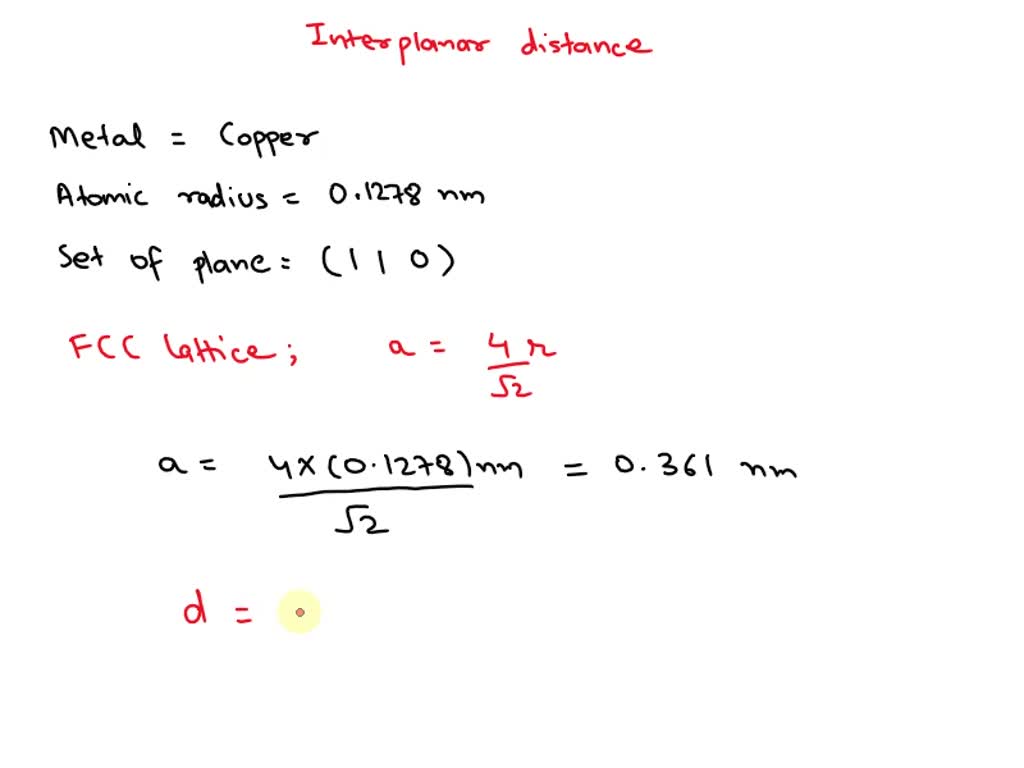 Interplanar distance
Metal = Copper
Atomic radius = 0.1278 nm
Set of plane = (1 1 0)
FCC lattice; a = 4r/√2
a = 4×(0.1278)nm/√2 = 0.361 nm
d =